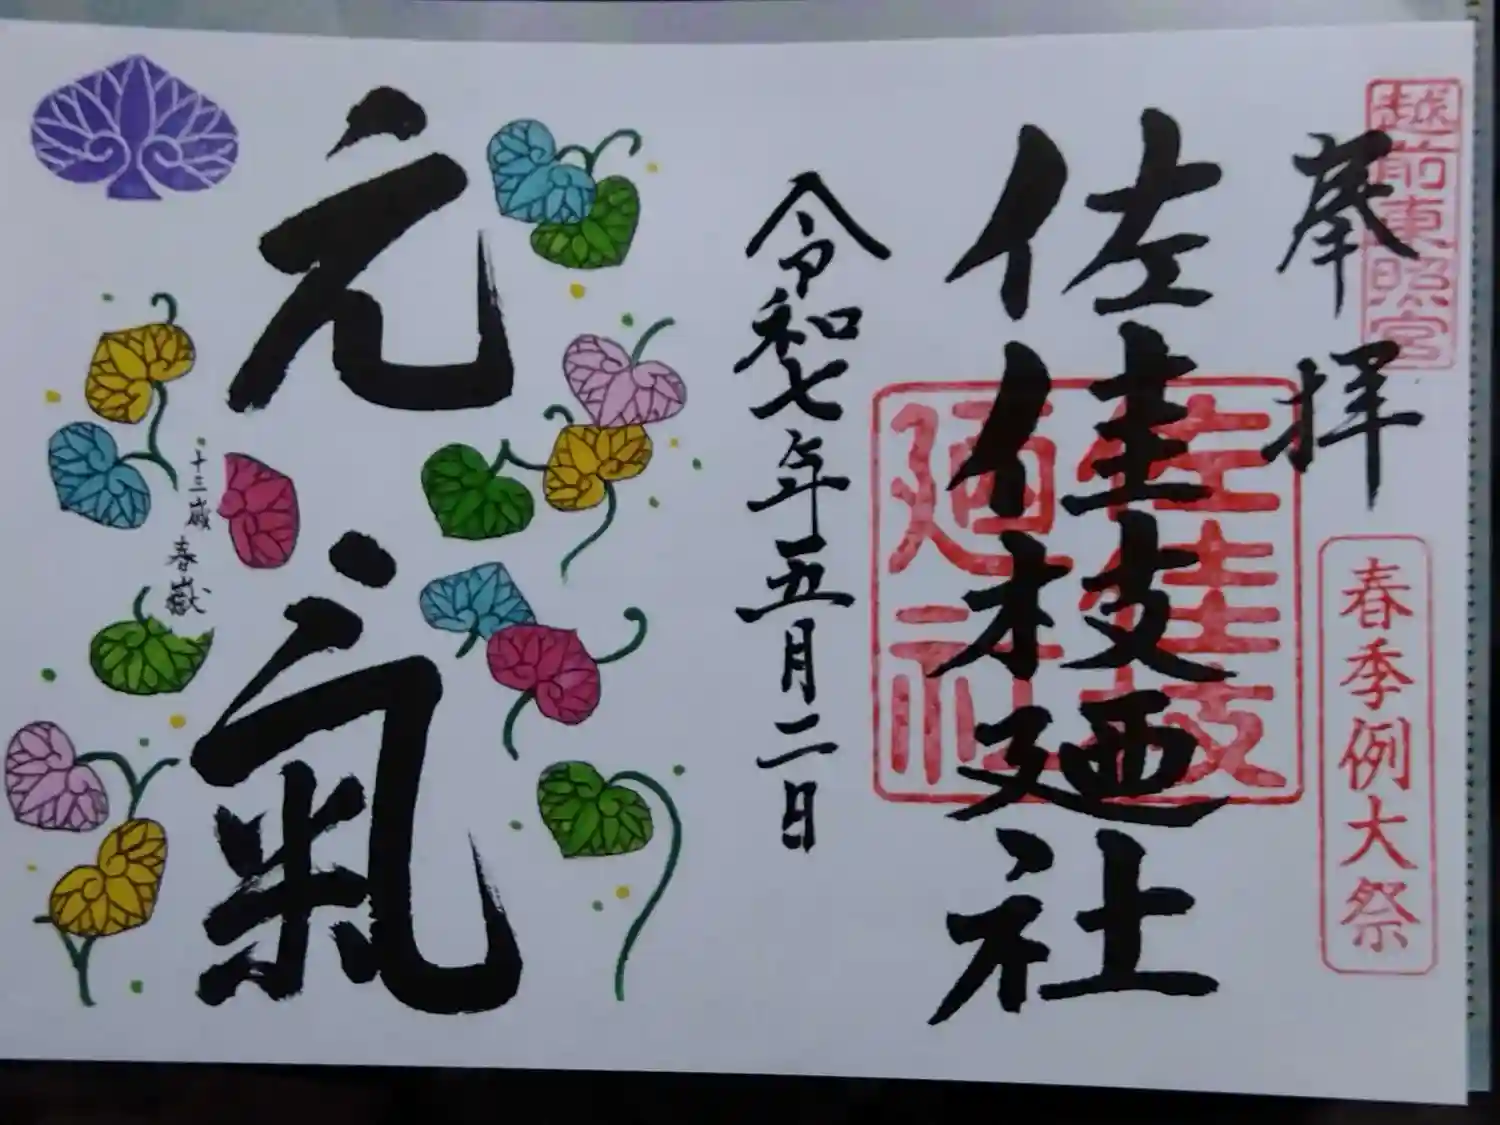 越前東照宮
奉拝
春季例大祭
佐佳枝廼社
佐佳枝廼社
令和七年五月二日
元氣
十三歳
春嶽